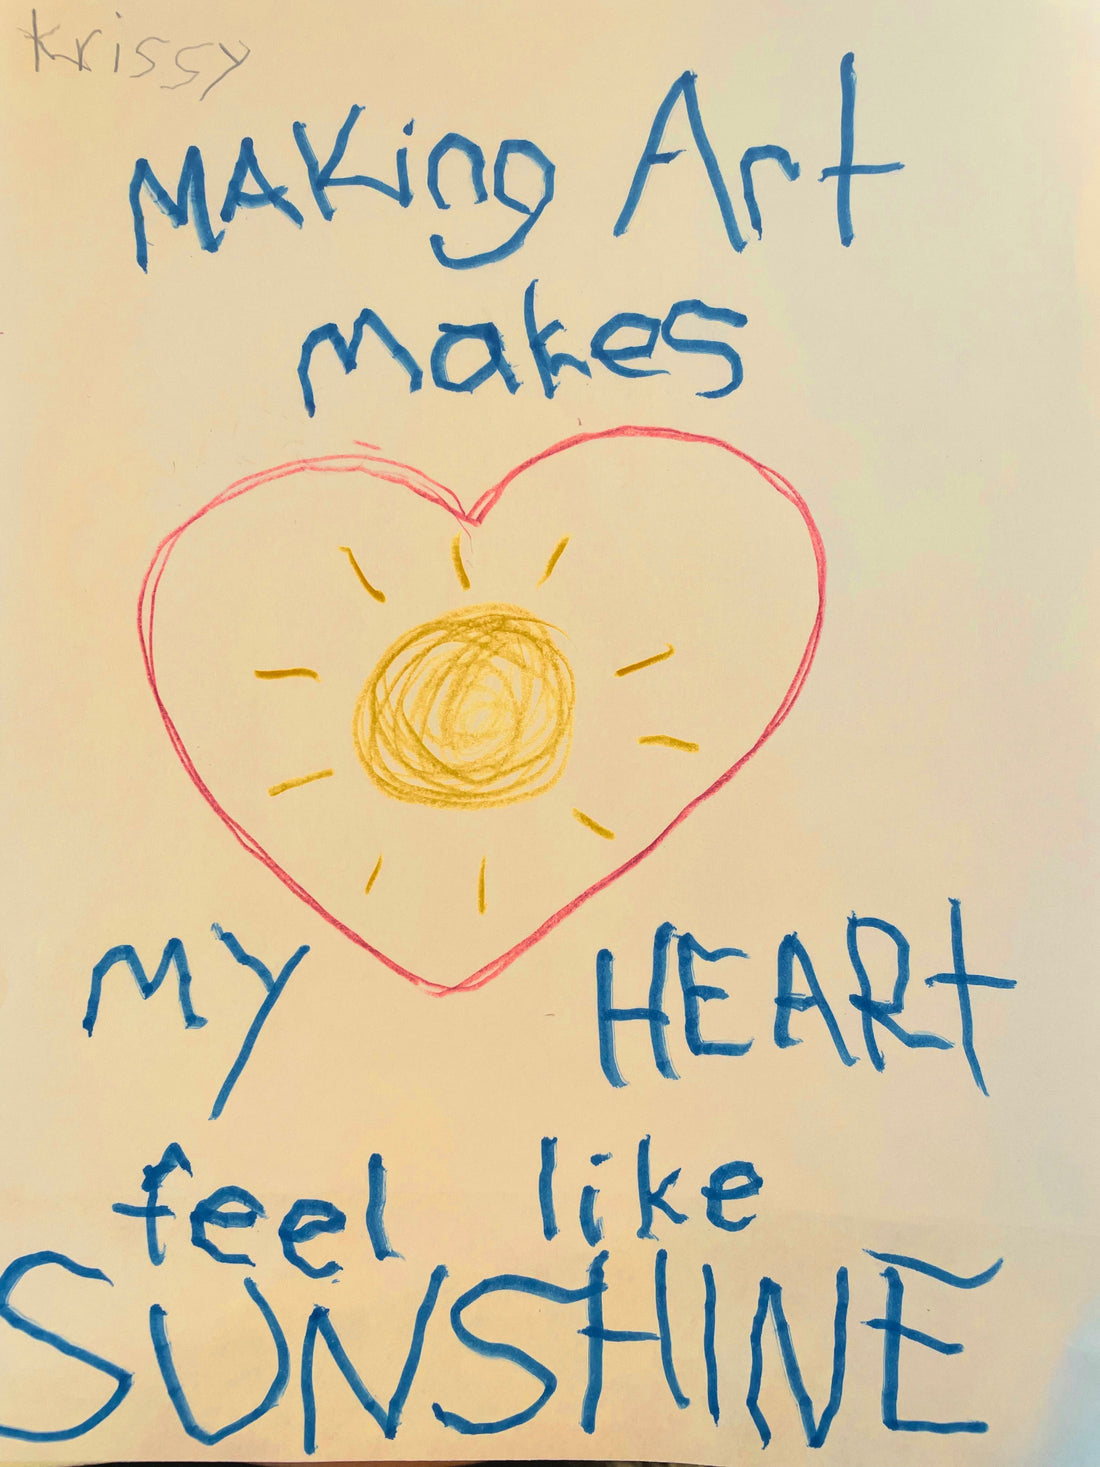 Krissy
MAKing Art
makes
my HEARt
feel like
SUNSHINE